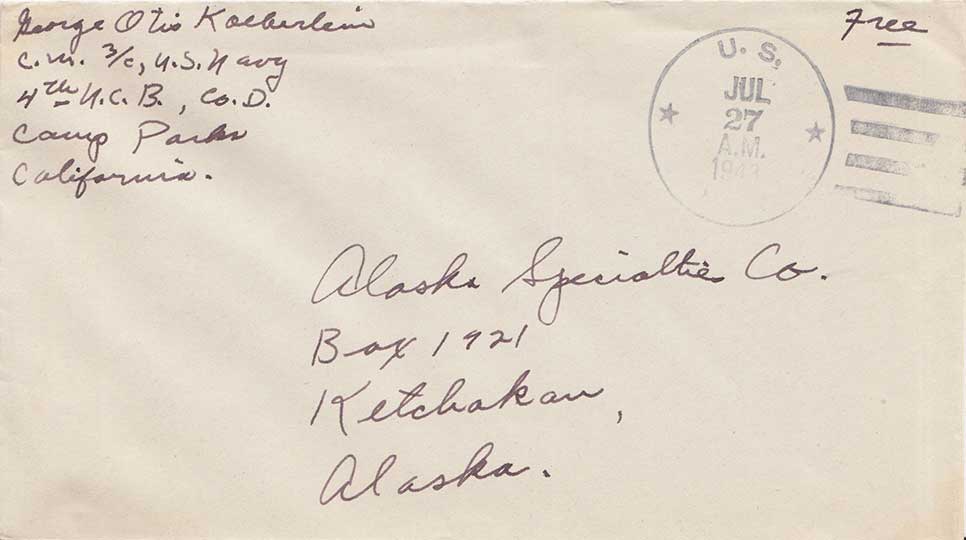 George Otis Koeberlein
C.M. 3/c, U.S. Navy
4th N.C.B., Co. D.
Camp Parks
California.
Free
U. S.
JUL
27
A.M.
1943
Alaska Specialties Co.
Box 1921
Ketchakan,
Alaska.